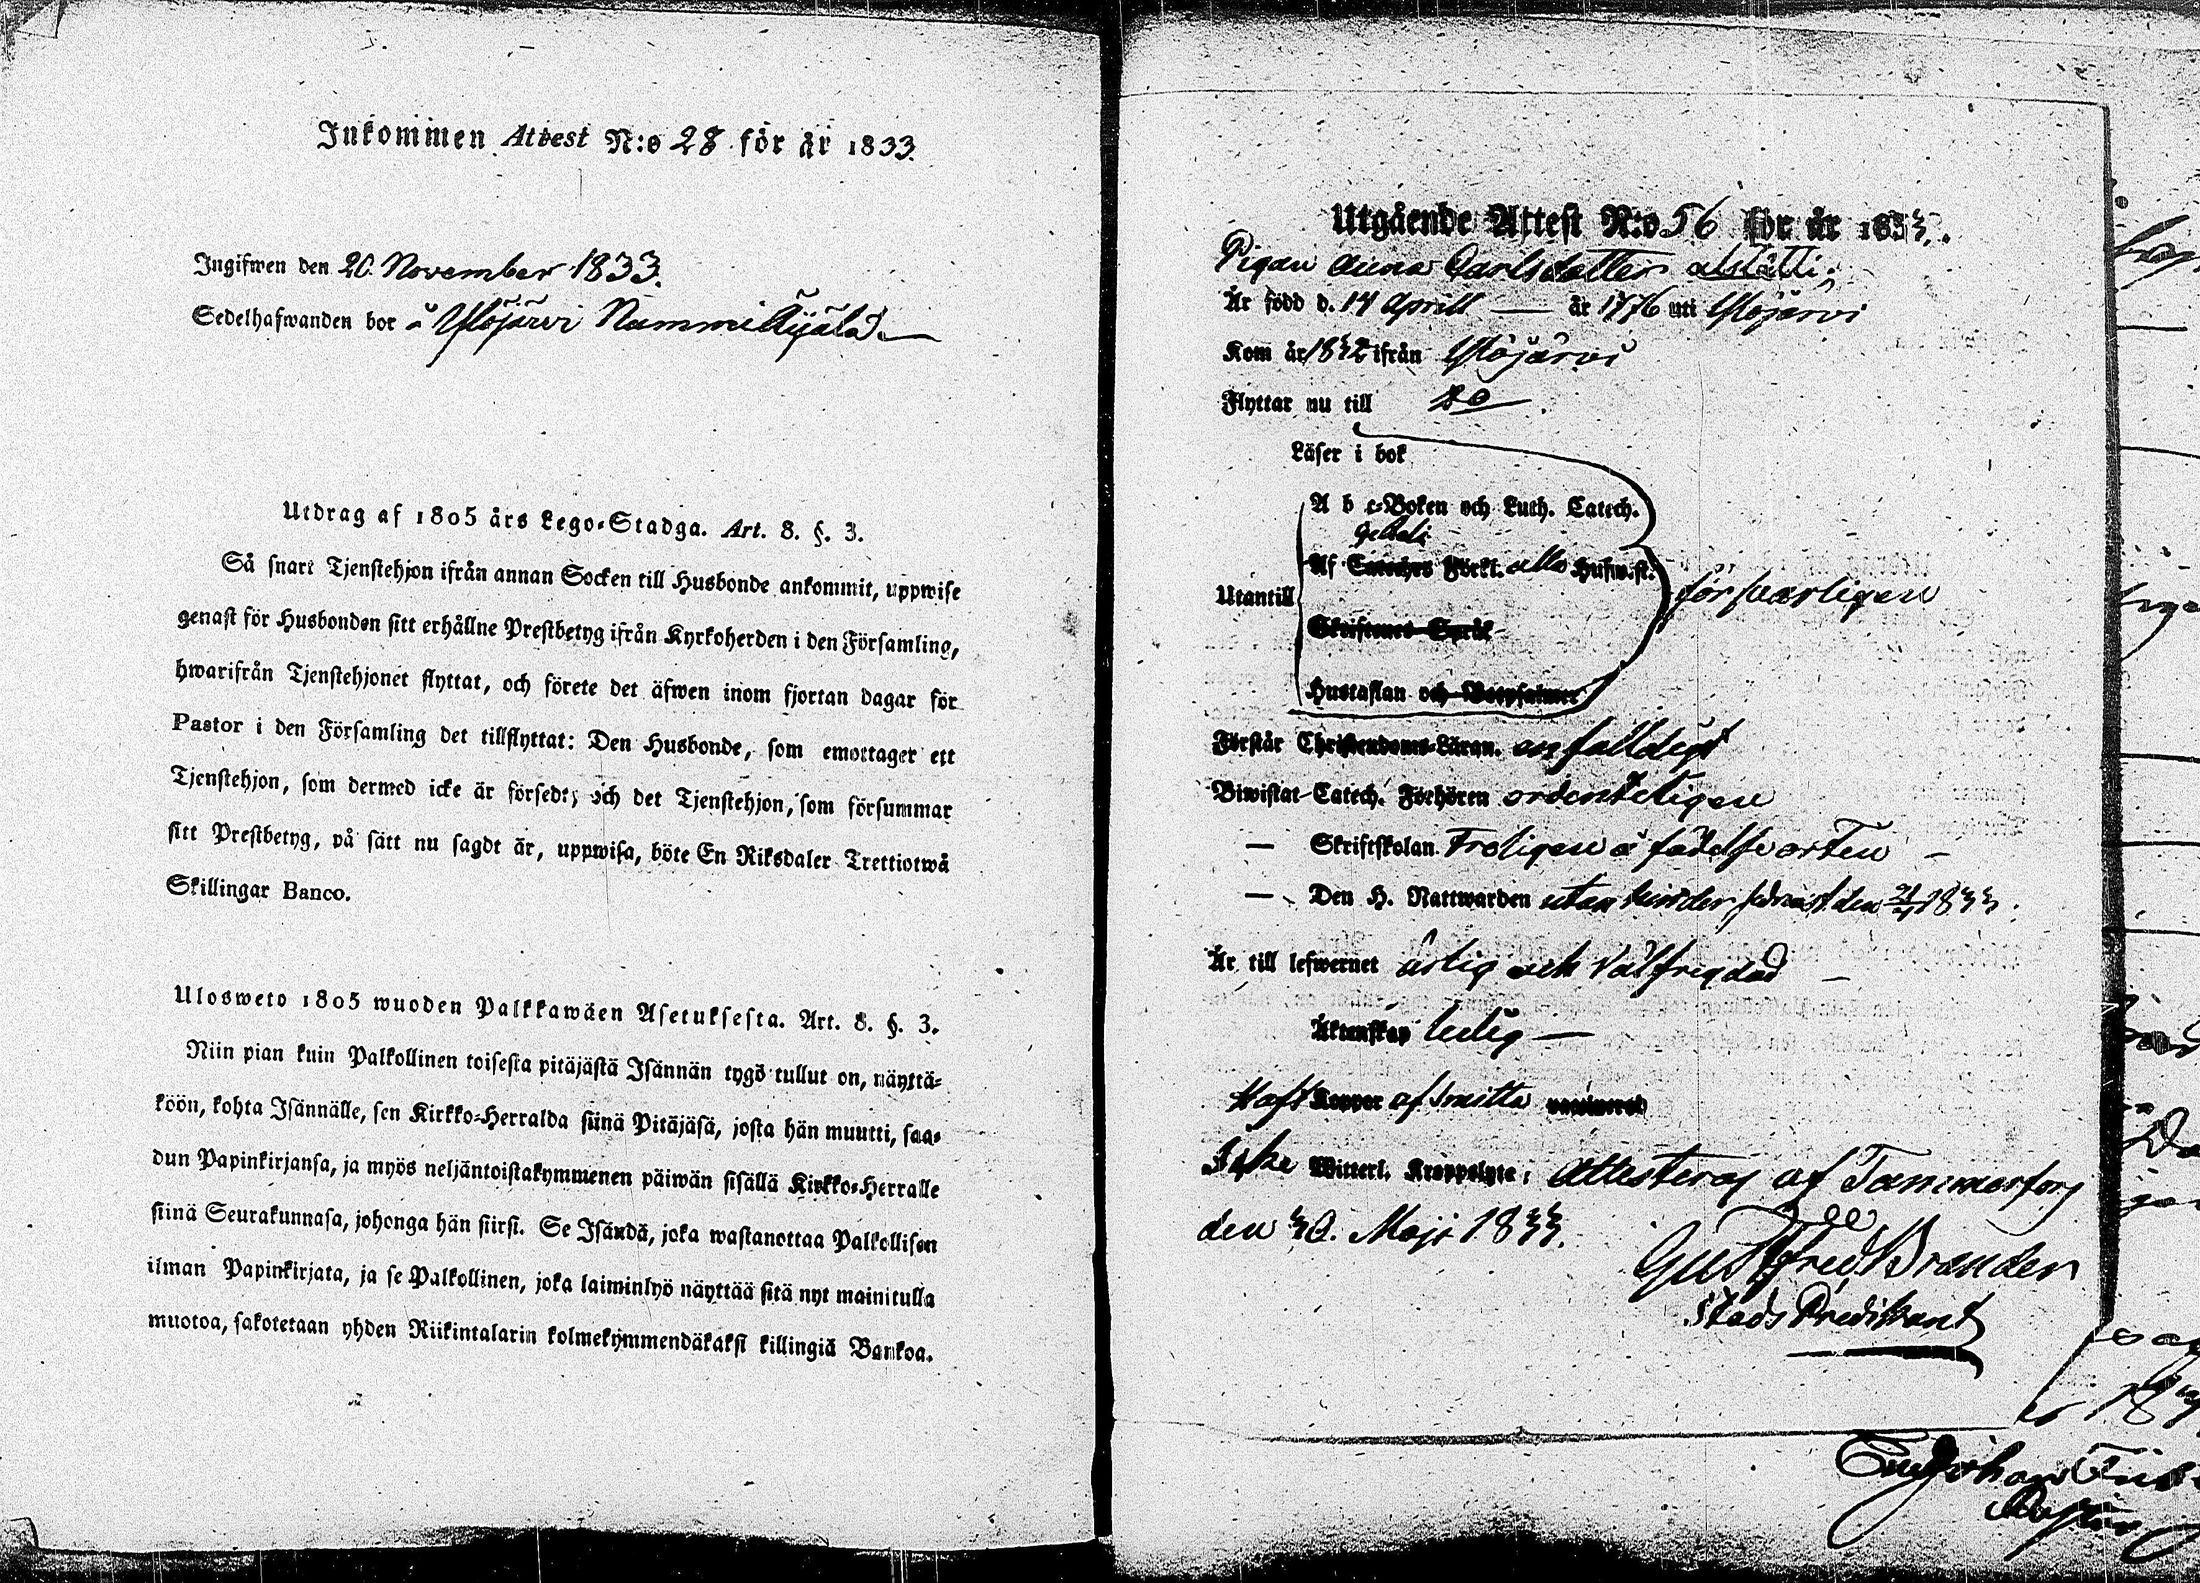 Inkommen Attest N:o 28 för år 1833.
Ingifwen den 20. November 1833.
Sedelhafwanden bor å Ylöjärvi
Utdrag af 1805 års Lego-Stadga. Art. 8. §. 3.
Så snart Tjenstehjon ifrån annan Socken till Husbonde ankommit, uppwise
genast för Husbonden sitt erhållne Prestbetyg ifrån Kyrkoherden i den Församling,
hwarifrån Tjenstehjonet flyttat, och förete det äfwen inom fjortan dagar för
Pastor i den Församling det tillflyttat: Den Husbonde, som emottager ett
Tjenstehjon, som dermed icke är försedt, och det Tjenstehjon, som försummar
sitt Prestbetyg, på sätt nu sagdt är, uppwisa, böte En Riksdaler Trettiotwå
Skillingar Banco.
Ulosweto 1805 wuoden Palkkawäen Asetuksesta. Art. 8. §. 3.
Niin pian kuin Palkollinen toisesta pitäjästä Isännän tygö tullut on, näyttä-
köön, kohta Isännälle, sen Kirkko-Herralda siinä Pitäjäsä, josta hän muutti, saa-
dun Papinkirjansa, ja myös neljäntoistakymmenen päiwän sisällä Kirkko-Herralle
siinä Seurakunnasa, johonga hän siirsi. Se Isändä, joka wastanottaa Palkollisen
ilman Papinkirjata, ja se Palkollinen, joka laiminlyö näyttää sitä nyt mainitulla
muotoa, sakotetaan yhden Riikintalarin kolmekymmendäkaksi killingiä Bankoa.
Utgående Attest N:o 56 för år 1833.
Pigan Anna Carlsdotter
Är född d. 14 Aprill — år 1776 uti Ylöjärvi
Kom år 1832 ifrån Ylöjärvi
Flyttar nu till Do
Läser i bok
A b c-Boken och Luth. Catech.
Af Catechys Förkl. alla Husw.st.
Utantill försvarligen
Skriftenes Språk
Hustaflan och Botpsalmer
Förstår Christendoms-Läran. enfalldigt
Biwistat Catech. Förhören ordenteligen
— Skriftskolan Troligen å födelse orten —
— Den H. Nattwarden utan hinder sednast den 21/4 1833.
Är till lefwernet ärlig och välfrägdad —
Äktenskap ledig —
Haft Koppor af smitta vaccinerad
Icke Witterl. Kroppslyte; Attesteras af Tammerfors
den 30. Maji 1833.
Gust Fred Brander
Stads Predikant